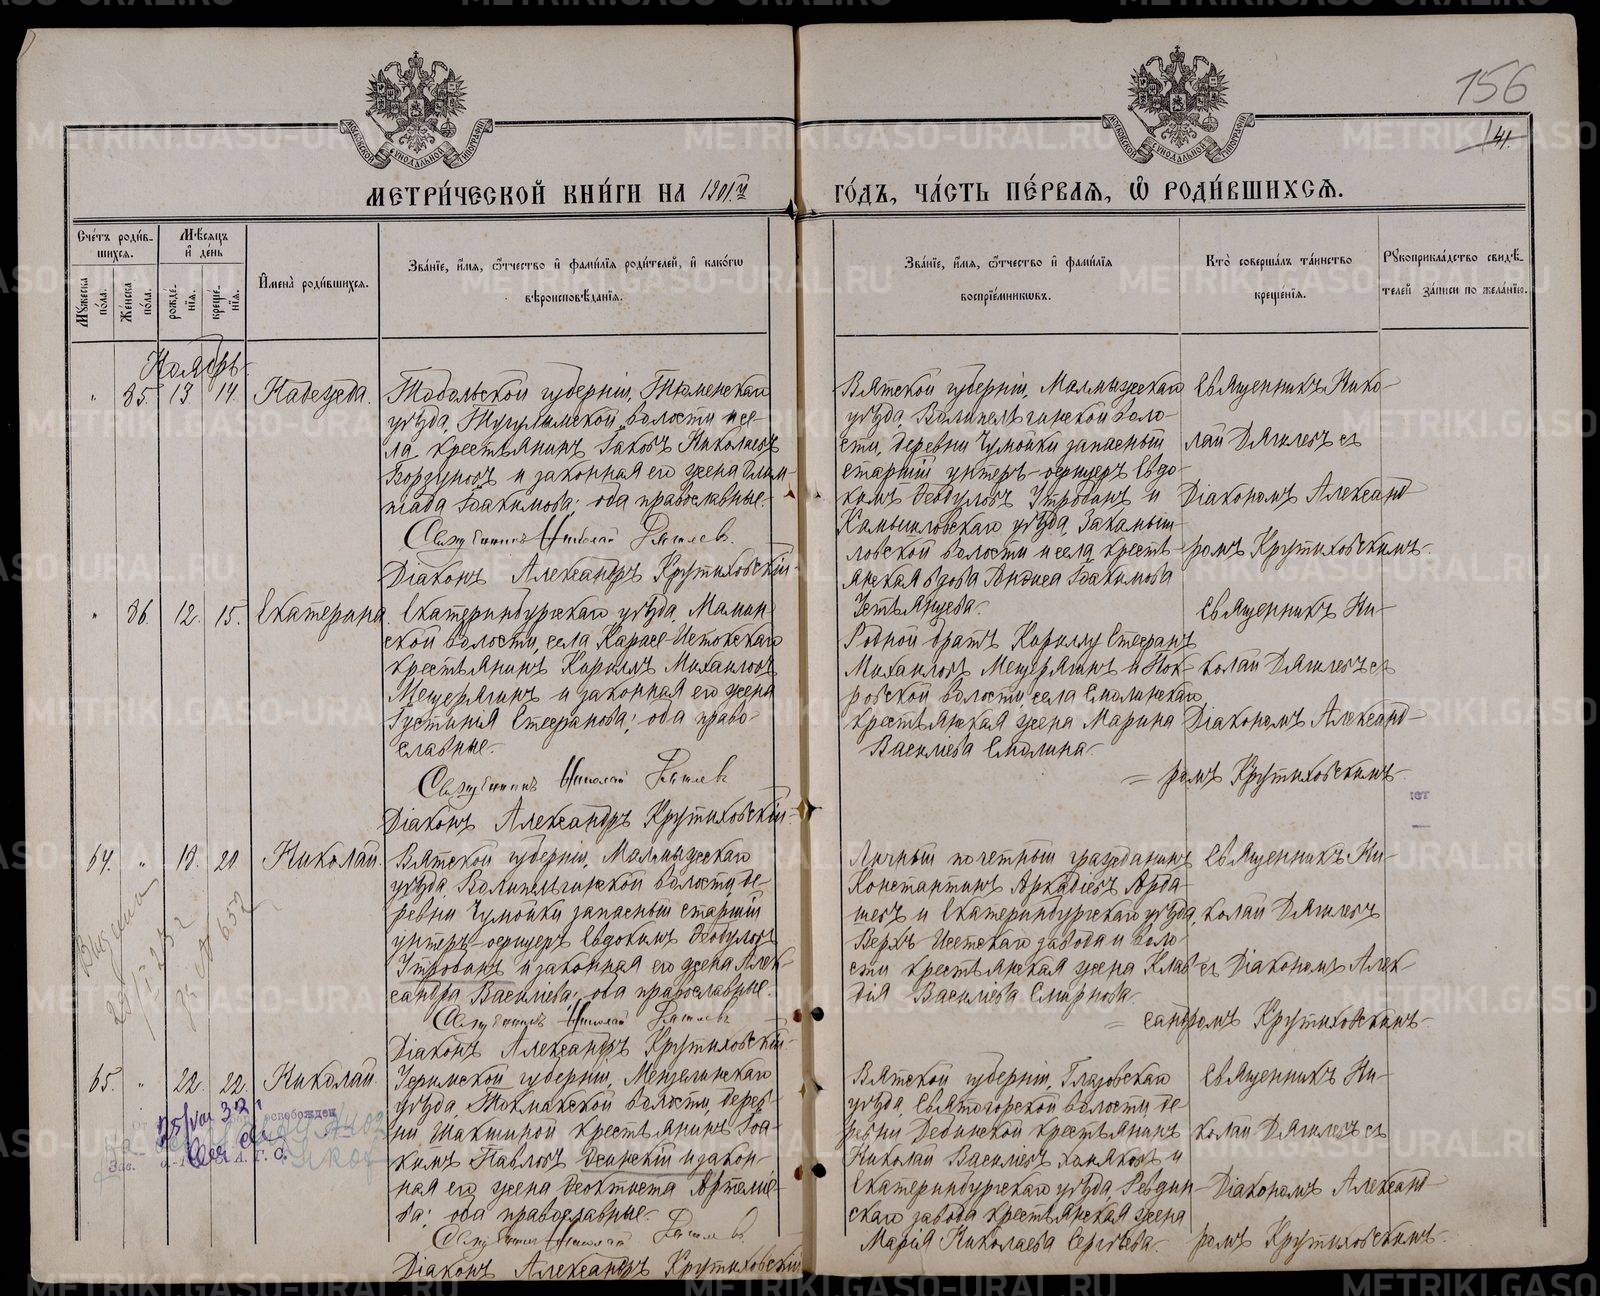 156
141.
МЕТРИ́ЧЕСКОЙ КНИ́ГИ НА 1901й
ГО́ДЪ, ЧА́СТЬ ПЕ́РВАЯ, Ѽ РОДИ́ВШИХСЯ.
Сче́тъ роди́в-
шихся.
Мѣ́сяцъ
и҆ де́нь
Мꙋжеска по́ла.
Же́нска по́ла.
рожде́нїя.
креще́нїя.
И҆мена̀ роди́вшихся.
Зва́нїе, и҆́мя, ѻ҆́тчество и҆ фами́лїя роди́телей, и҆ како́гѡ
вѣроисповѣ́данїя.
Зва́нїе, и҆́мя, ѻ҆́тчество и҆ фами́лїя
воспрїе́мникѡвъ.
Кто̀ соверша́лъ та́инство
креще́нїя.
Рꙋкоприкла́дство свидѣ́-
телей за́писи по жела́нїю.
Ноябрь
" 85. 13 14. Надежда.
Тобольской губерніи, Тюменскаго
уѣзда, Тугулымской волости и се-
ла крестьянинъ Іаковъ Николаевъ
Борзуновъ и законная его жена Олим-
піада Іоакимова; оба православные.
Священникъ Николай Дягилевъ.
Діаконъ Александръ Крутиховскій.
Вятской губерніи, Малмыжскаго
уѣзда, Волипельгинской воло-
сти, деревни Чумойки запасный
старшій унтеръ-офицеръ Евдо-
кимъ Ѳеодуловъ Утробинъ и
Камышловскаго уѣзда, Закамыш-
ловской волости и села кресть-
янская вдова Іоакимова
Устьянцева.
Священникъ Нико-
лай Дягилевъ съ
Діакономъ Александ-
ромъ Крутиховскимъ.
" 86. 12. 15. Екатерина.
Екатеринбургскаго уѣзда, Мамин-
ской волости, села Карасье-Истокскаго
крестьянинъ Кириллъ Михаиловъ
Мещерягинъ и законная его жена
Іустинья Стефанова; оба право-
славные.
Священникъ Николай Дягилевъ
Діаконъ Александръ Крутиховскій.
Родной братъ Кириллу Стефанъ
Михаиловъ Мещерягинъ и Пок-
ровской волости, села Смолинскаго
крестьянская жена Марина
Василіева Смолина.
Священникъ Ни-
колай Дягилевъ съ
Діакономъ Александ-
= ромъ Крутиховскимъ.
64. " 18. 20 Николай.
Вятской губерніи, Малмыжскаго
уѣзда Волипельгинской волости, де-
ревни Чумойки запасный старшій
унтеръ-офицеръ Евдокимъ Ѳеодуловъ
Утробинъ и законная его жена Алек-
сандра Василіева; оба православные.
Священникъ Николай Дягилевъ
Діаконъ Александръ Крутиховскій.
Личный почетный гражданинъ
Константинъ Аркадіевъ Арда-
шевъ и Екатеринбургскаго уѣзда,
Верхъ-Исетскаго завода и воло-
сти крестьянская жена Клав-
дія Василіева Смирнова.
Священникъ Ни-
колай Дягилевъ
съ Діакономъ Алек-
= сандромъ Крутиховскимъ.
65. " 22. 22. Николай.
Уфимской губерніи, Мензелинскаго
уѣзда, Токмакской волости, дерев-
ни Шакшиной крестьянинъ Іоа-
кимъ Павловъ Осинскій и закон-
ная его жена Ѳеоктиста Артеміе-
ва; оба православные.
Священникъ Николай Дягилевъ.
Діаконъ Александръ Крутиховскій
Вятской губерніи, Глазовскаго
уѣзда, Святогорской волости, де-
ревни Дебинской крестьянинъ
Николай Василіевъ Хоняковъ и
Екатеринбургскаго уѣзда, Ревдин-
скаго завода крестьянская жена
Марія Николаева Сергѣева.
Священникъ Ни-
колай Дягилевъ съ
Діакономъ Александ-
ромъ Крутиховскимъ.